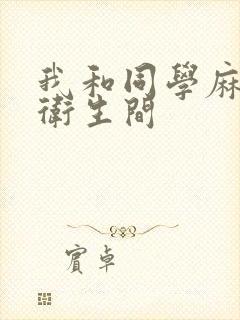 我和同學麻
衛生間
賓卓